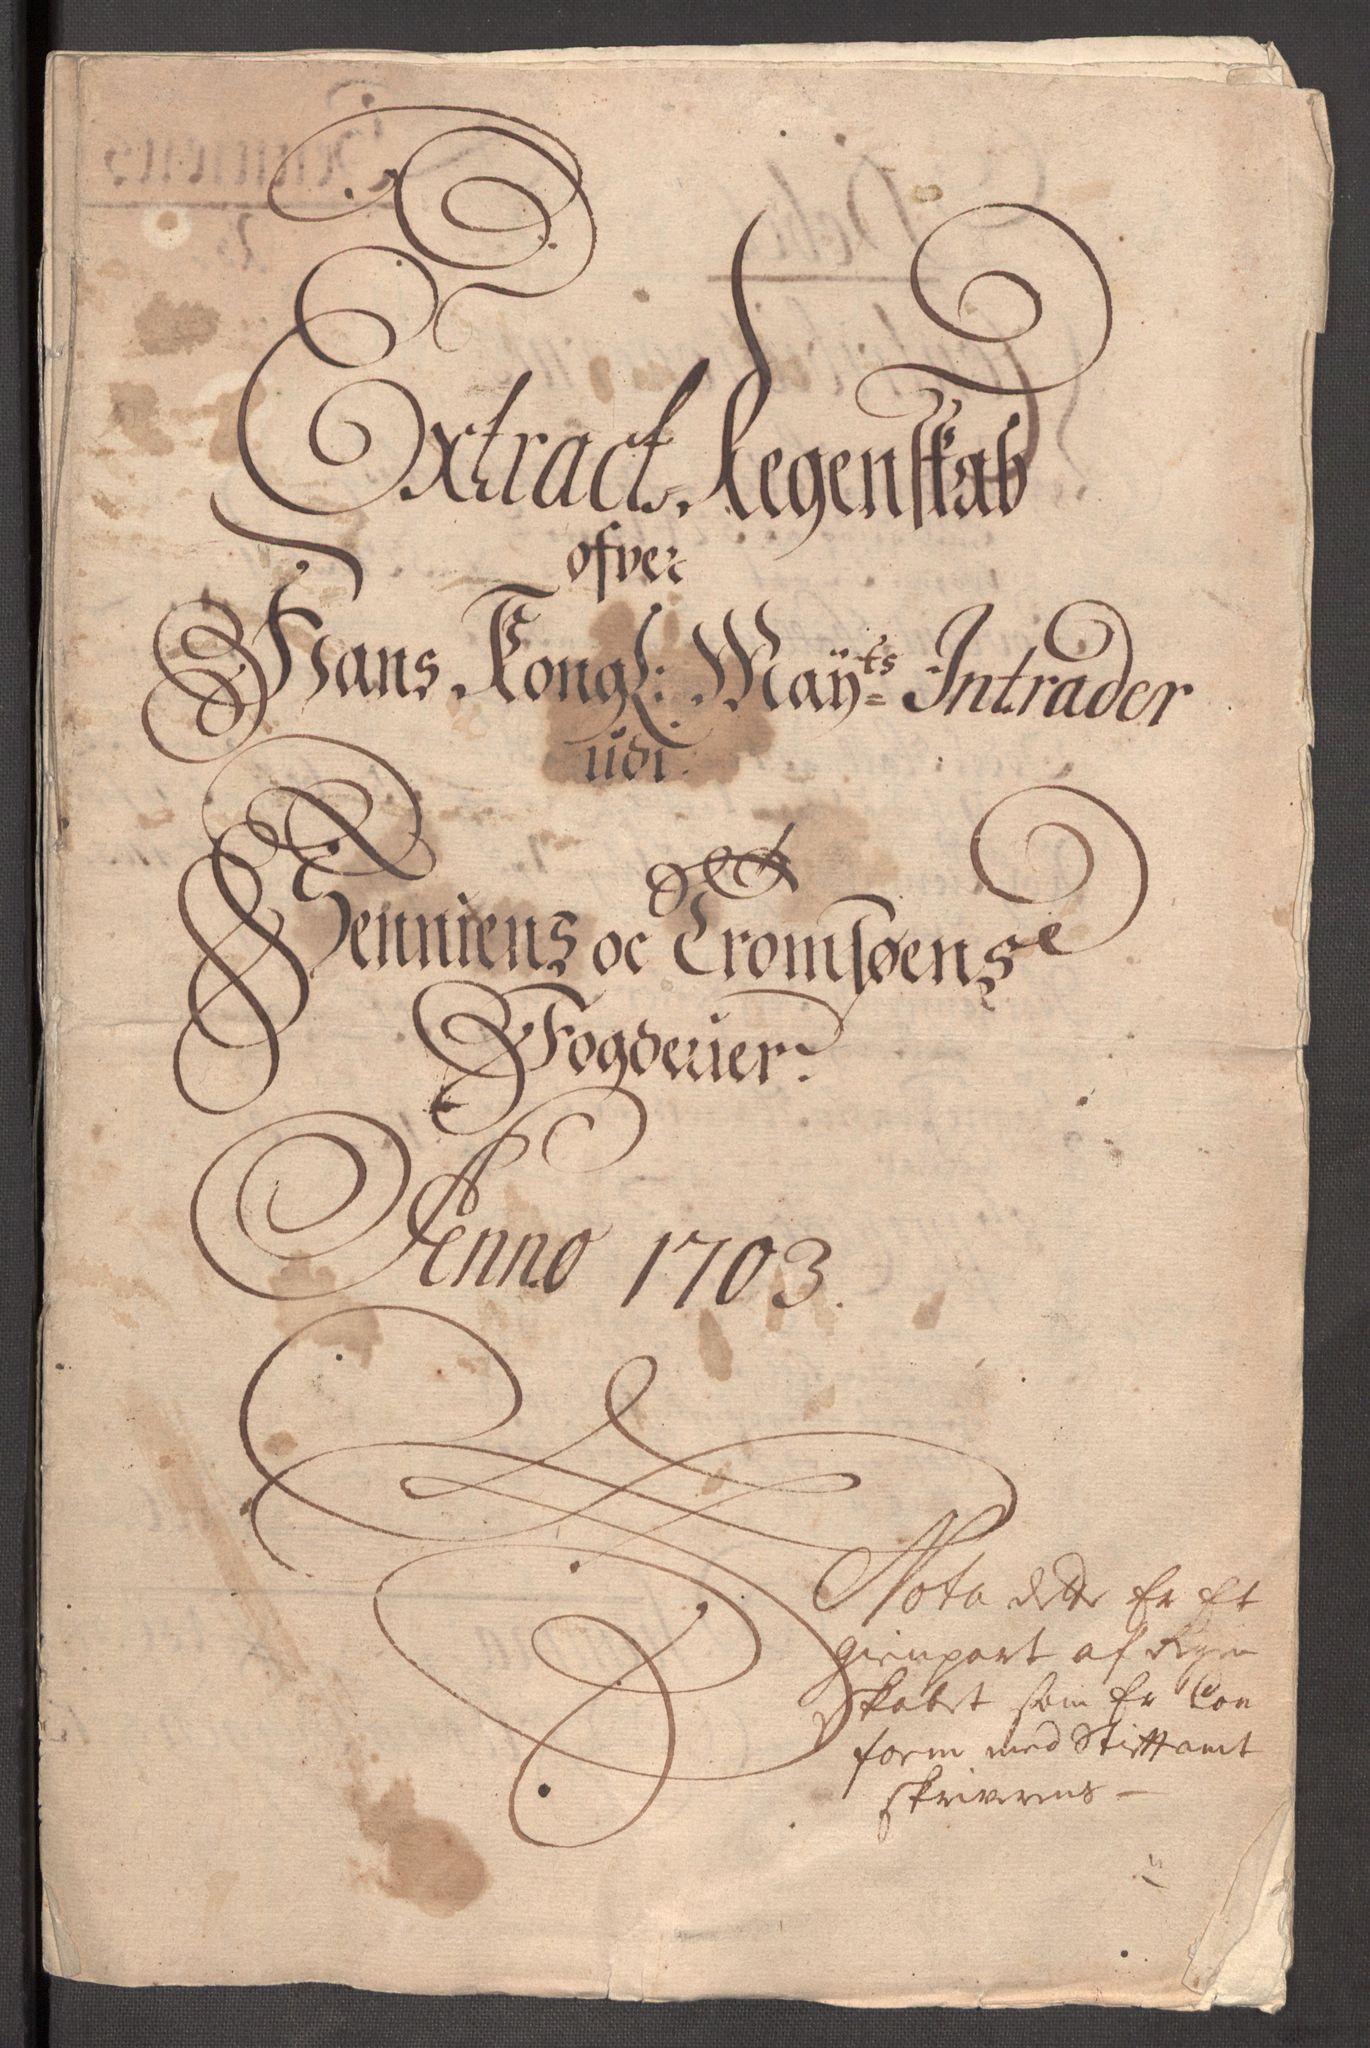 Extract Regenskab
ofver
Hans Kongl: Mayts Intrader
udi
Senniens oc Tromsøens
Fogderier.
Anno 1703.
Nota dette Er Et
gienpart af Regen
skabet som Er Con
form med Stiftamt
skriverens —